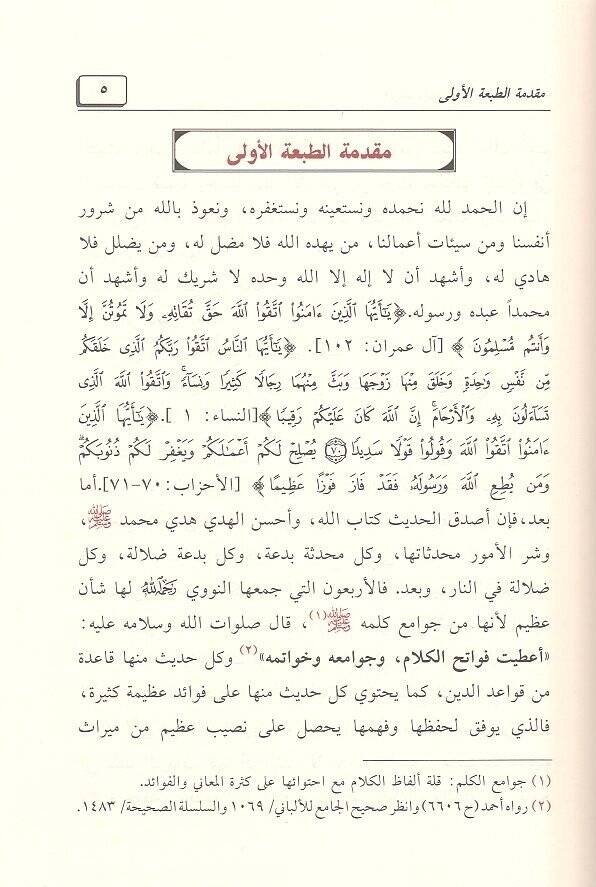 مقدمة الطبعة الأولى
٥
مقدمة الطبعة الأولى
إن الحمد لله نحمده ونستعينه ونستغفره، ونعوذ بالله من شرور
أنفسنا ومن سيئات أعمالنا، من يهده الله فلا مضل له، ومن يضلل فلا
هادي له، وأشهد أن لا إله إلا الله وحده لا شريك له وأشهد أن
محمداً عبده ورسوله.﴿يَٰٓأَيُّهَا ٱلَّذِينَ ءَامَنُوا۟ ٱتَّقُوا۟ ٱللَّهَ حَقَّ تُقَاتِهِۦ وَلَا تَمُوتُنَّ إِلَّا
وَأَنتُم مُّسْلِمُونَ ﴾ [آل عمران: ١٠٢]. ﴿يَٰٓأَيُّهَا ٱلنَّاسُ ٱتَّقُوا۟ رَبَّكُمُ ٱلَّذِى خَلَقَكُم
مِّن نَّفْسٍ وَٰحِدَةٍ وَخَلَقَ مِنْهَا زَوْجَهَا وَبَثَّ مِنْهُمَا رِجَالًا كَثِيرًا وَنِسَآءً ۚ وَٱتَّقُوا۟ ٱللَّهَ ٱلَّذِى
تَسَآءَلُونَ بِهِۦ وَٱلْأَرْحَامَ ۚ إِنَّ ٱللَّهَ كَانَ عَلَيْكُمْ رَقِيبًا ﴾[النساء: ١ ].﴿يَٰٓأَيُّهَا ٱلَّذِينَ
ءَامَنُوا۟ ٱتَّقُوا۟ ٱللَّهَ وَقُولُوا۟ قَوْلًا سَدِيدًا ﴿٧٠﴾ يُصْلِحْ لَكُمْ أَعْمَٰلَكُمْ وَيَغْفِرْ لَكُمْ ذُنُوبَكُمْ ۗ
وَمَن يُطِعِ ٱللَّهَ وَرَسُولَهُۥ فَقَدْ فَازَ فَوْزًا عَظِيمًا ﴾ [الأحزاب: ٧٠-٧١].أما
بعد، فإن أصدق الحديث كتاب الله، وأحسن الهدي هدي محمد ﷺ،
وشر الأمور محدثاتها، وكل محدثة بدعة، وكل بدعة ضلالة، وكل
ضلالة في النار، وبعد. فالأربعون التي جمعها النووي رحمه الله لها شأن
عظيم لأنها من جوامع كلمه ﷺ(١)، قال صلوات الله وسلامه عليه:
«أعطيت فواتح الكلام، وجوامعه وخواتمه»(٢) وكل حديث منها قاعدة
من قواعد الدين، كما يحتوي كل حديث منها على فوائد عظيمة كثيرة،
فالذي يوفق لحفظها وفهمها يحصل على نصيب عظيم من ميراث
(١) جوامع الكلم: قلة ألفاظ الكلام مع احتوائها على كثرة المعاني والفوائد.
(٢) رواه أحمد (ح ٦٦٠٦) وانظر صحيح الجامع للألباني/ ١٠٦٩ والسلسلة الصحيحة/ ١٤٨٣.